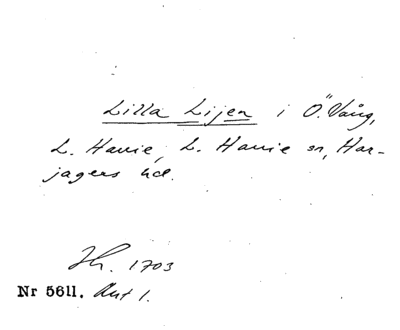 Lilla Lijen i Ö. Vång,
L. Harrie, L. Harrie sn, Har-
jagers hd.
Hh. 1703
Nr 5611. Akt 1.